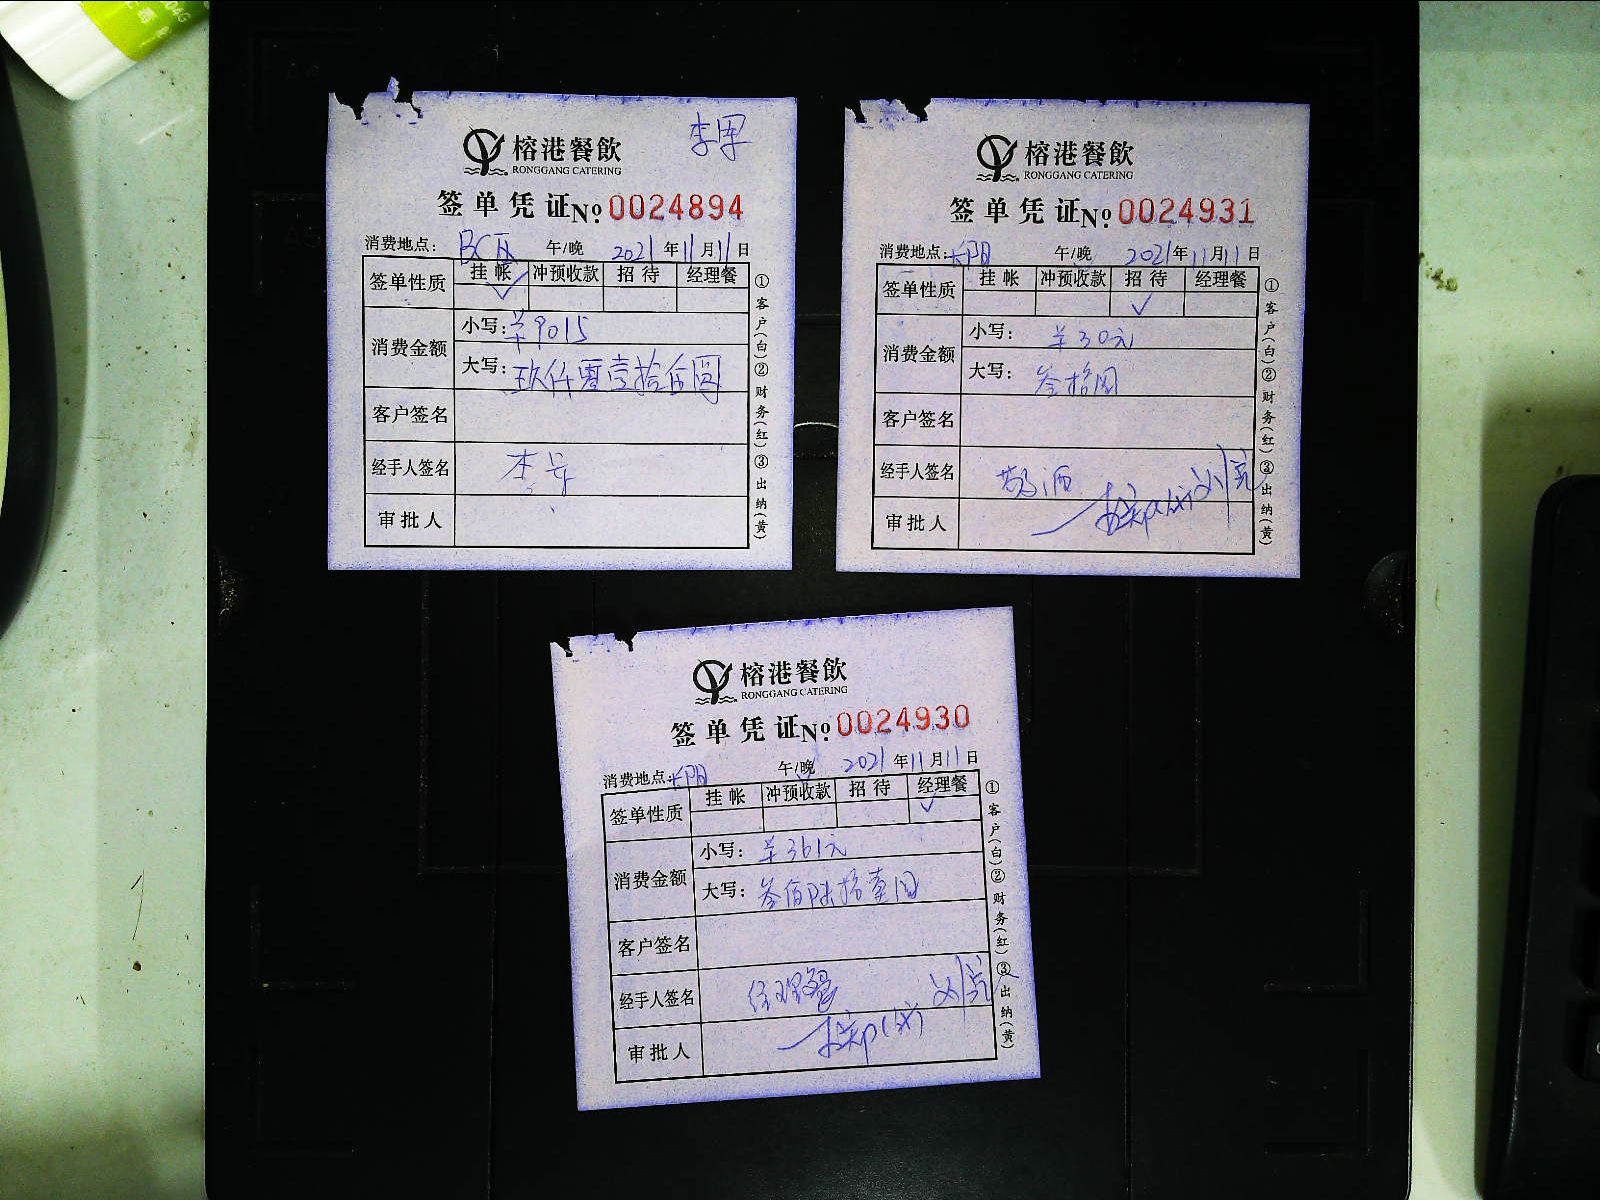 李军
榕港餐飲
RONGGANG CATERING
签单凭证 No. 0024894
消费地点: 午/晚 2021年11月11日
签单性质 挂帐 冲预收款 招待 经理餐
✓
消费金额 小写: ¥9015
大写: 玖仟零壹拾伍圆
客户签名
经手人签名
审批人
①客户(白)②财务(红)③出纳(黄)
榕港餐飲
RONGGANG CATERING
签单凭证 No. 0024931
消费地点: 午/晚 2021年11月11日
签单性质 挂帐 冲预收款 招待 经理餐
✓
消费金额 小写: ¥30元
大写: 叁拾圆
客户签名
经手人签名
审批人
①客户(白)②财务(红)③出纳(黄)
榕港餐飲
RONGGANG CATERING
签单凭证 No. 0024930
消费地点: 午/晚 2021年11月11日
签单性质 挂帐 冲预收款 招待 经理餐
✓
消费金额 小写: ¥361元
大写: 叁佰陆拾壹圆
客户签名
经手人签名 经理餐
审批人
①客户(白)②财务(红)③出纳(黄)